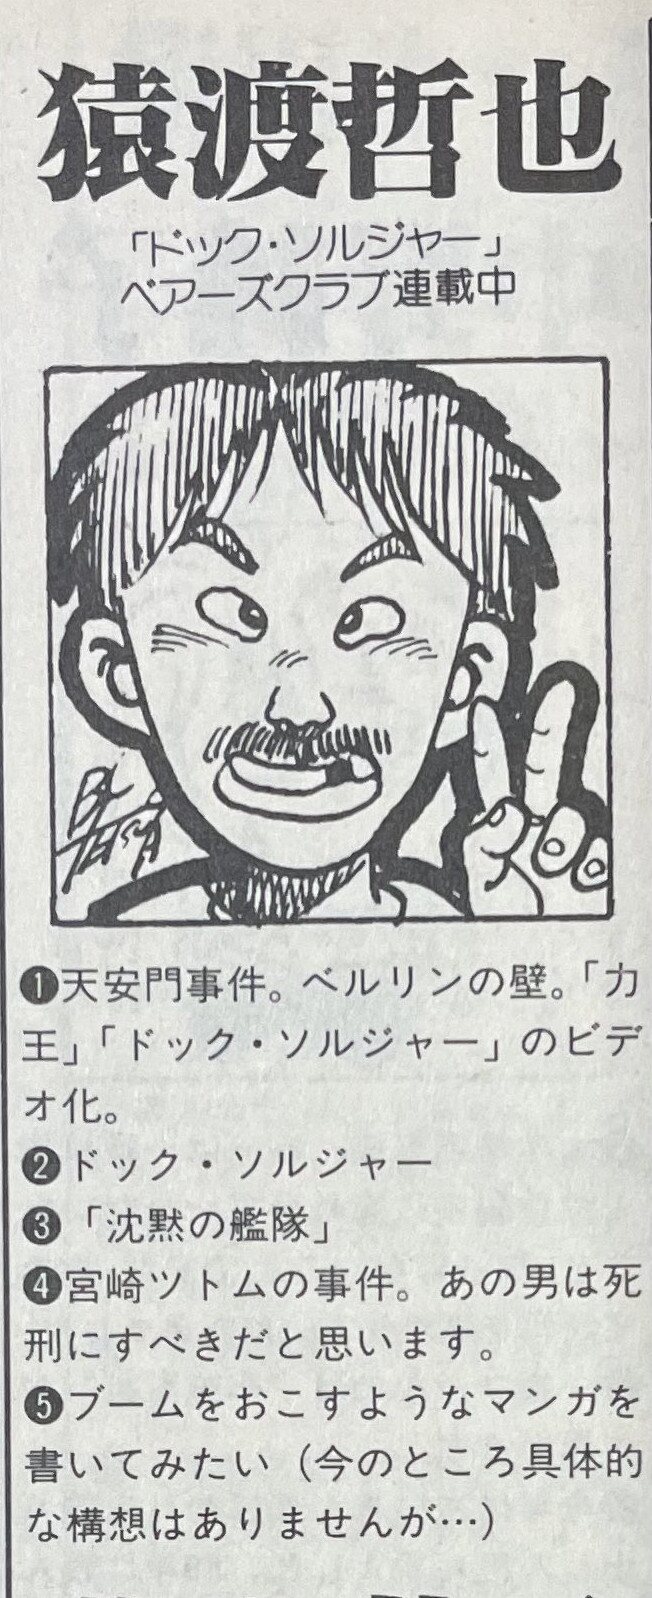 猿渡哲也
「ドック・ソルジャー」
ベアーズクラブ連載中
❶天安門事件。ベルリンの壁。「力
王」「ドック・ソルジャー」のビデ
オ化。
❷ドック・ソルジャー
❸「沈黙の艦隊」
❹宮崎ツトムの事件。あの男は死
刑にすべきだと思います。
❺ブームをおこすようなマンガを
書いてみたい（今のところ具体的
な構想はありませんが…）